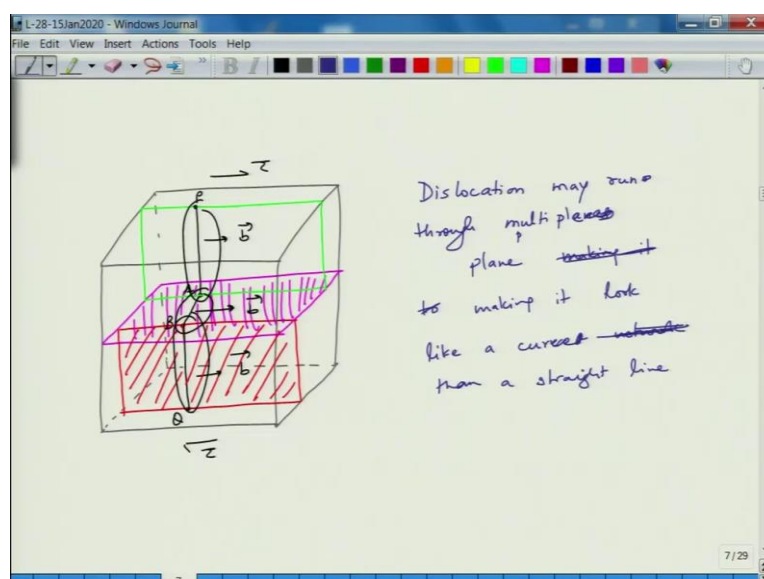 L-28-15Jan2020 - Windows Journal
File Edit View Insert Actions Tools Help
B I
τ
P
b
A
b
B
b
Q
τ
Dislocation may run
through multiple
plane making it
to making it look
like a curved
than a straight line
7/29